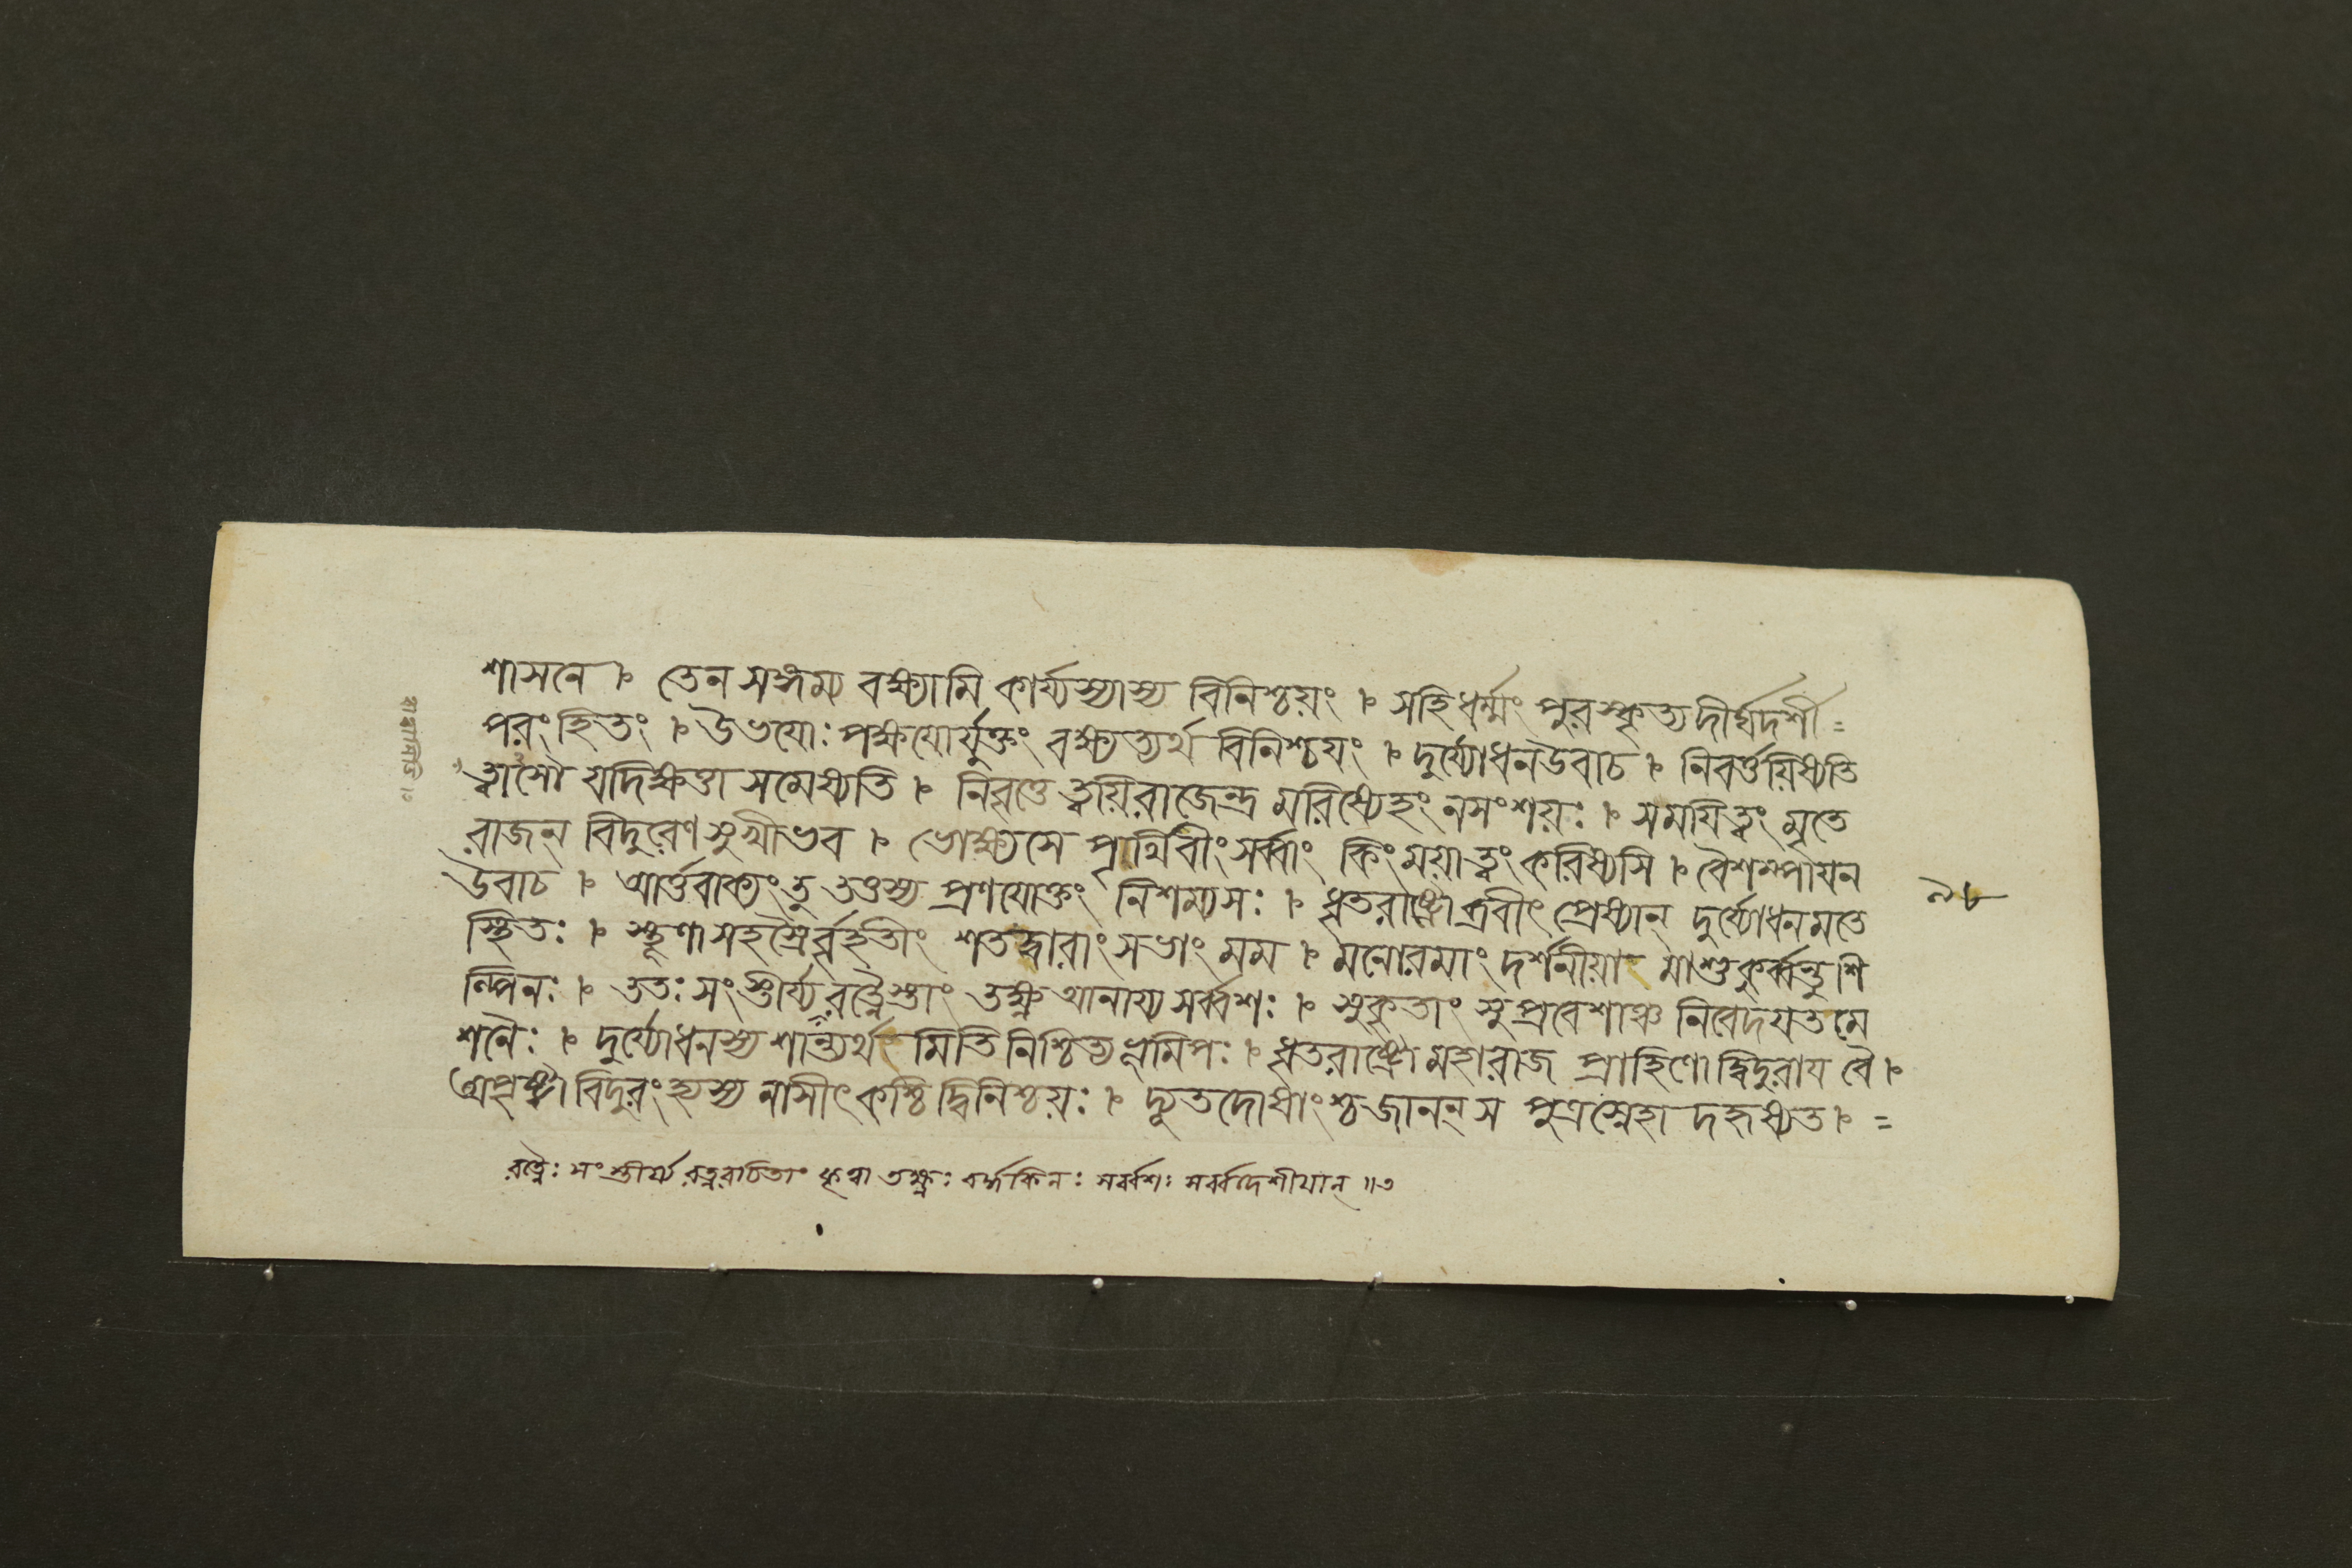 শাসনে ৷ তেন সঙ্গম্য বক্ষ্যামি কার্য্যস্যাস্য বিনিশ্চয়ং ৷ সহিধর্ম্মং পুরস্কৃত্য দীর্ঘদর্শী =
পরংহিতং ৷ উভযোঃ পক্ষযোর্যুক্তং বক্ষ্যত্যর্থ বিনিশ্চযং ৷ দুর্য্যোধনউবাচ ৷ নিবর্ত্তয়িষ্যতি
ত্বাসৌ যদিক্ষত্তা সমেষ্যতি ৷ নিবৃত্তে ত্বয়িরাজেন্দ্র মরিষ্যেহং নসংশয়ঃ ৷ সময়িত্বং মৃতে
রাজন্ বিদুরেণ সুখীভব ৷ ভোক্ষ্যসে পৃথিবীংসর্ব্বাং কিংময়াত্বংকরিষ্যসি ৷ বৈশম্পাযন
উবাচ ৷ আর্ত্তবাক্যংতু তত্তস্য প্রণযোক্তং নিশম্যসঃ ৷ ধৃতরাষ্ট্রোব্রবীৎ প্রেষ্যান্ দুর্য্যোধনমতে
স্থিতঃ ৷ স্থূণাসহস্রৈর্ব্বৃহতীং শতদ্বারাংসভাং মম ৷ মনোরমাং দর্শনীয়া মাশুকুর্ব্বন্তুশি
ল্পিনঃ ৷ ততঃ সংস্তীর্য্য রত্নৈস্তাং তক্ষ্ণ আনায্য সর্ব্বশঃ ৷ সুকৃতাং সুপ্রবেশাঞ্চ নিবেদযতমে
শনৈঃ ৷ দুর্য্যোধনস্য শান্ত্যর্থ মিতি নিশ্চিত্যভূমিপঃ ৷ ধৃতরাষ্ট্রো মহারাজ প্রাহিণোদ্বিদুরায বৈ ৷
অপৃষ্ট্বা বিদুরংহ্যস্য নাসীৎ কশ্চিদ্বিনিশ্চয়ঃ ৷ দ্যূতদোষাংশ্চজানন্ স পুত্রস্নেহা দকৃষ্যত ৷ =
রত্নৈঃ সংস্তীর্য্য রত্নরাচিতাং কৃত্বা তক্ষ্ণঃ বর্দ্ধকিনঃ সর্ব্বশঃ সর্ব্বদেশীযান্ ॥৩
৯৮